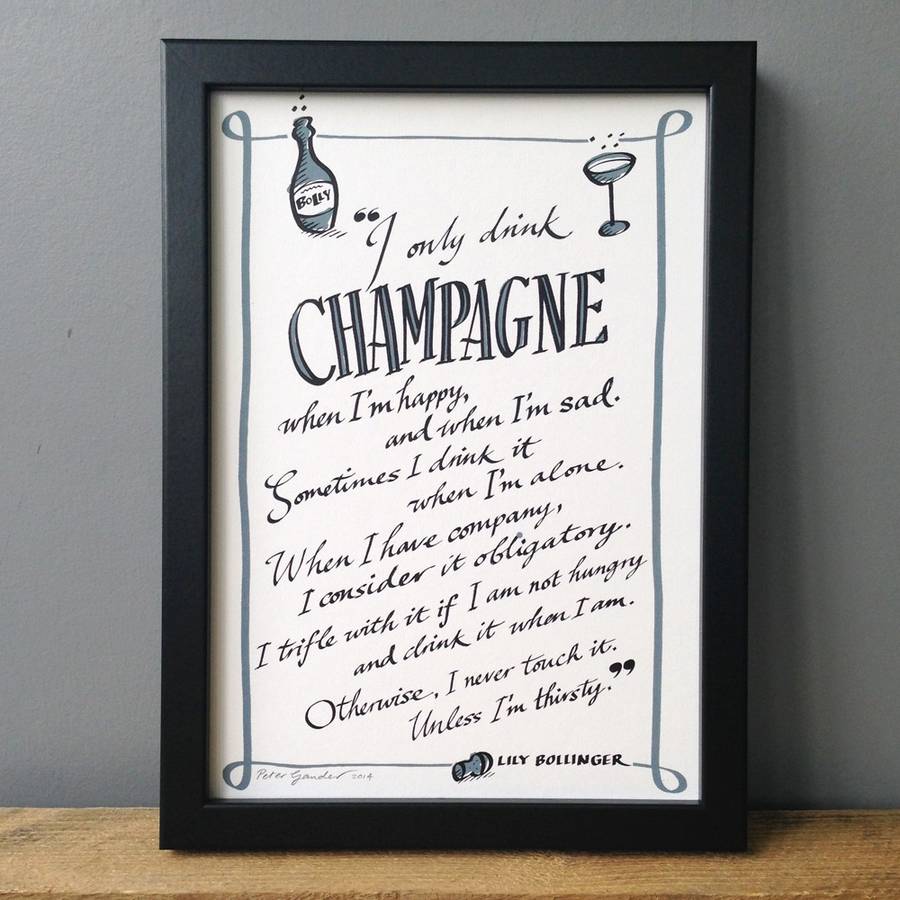 BOLLY
“I only drink
CHAMPAGNE
when I'm happy,
and when I'm sad.
Sometimes I drink it
when I'm alone.
When I have company,
I consider it obligatory.
I trifle with it if I am not hungry
and drink it when I am.
Otherwise, I never touch it.
Unless I'm thirsty.”
LILY BOLLINGER
Peter Gander 2014